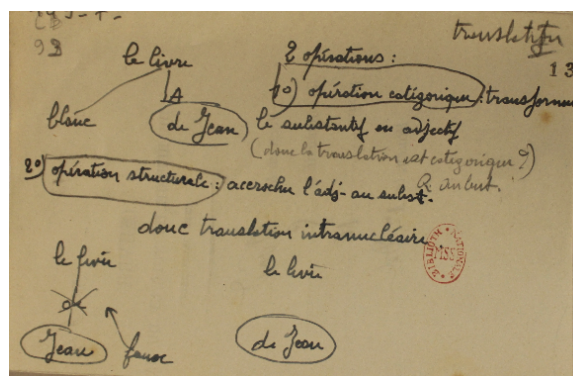 translatif
13
9B
le livre
2 opérations :
A
1°) opération catégorique : transformer
blanc
de Jean
le substantif en adjectif
(donc la translation est catégorique ?)
2°) opération structurale : accrocher l'adj. au subst.
R. au but.
donc translation intranucléaire
le livre
le livre
de
Jean
faux
de Jean
BIBLIOTH. NATIONALE
MSS